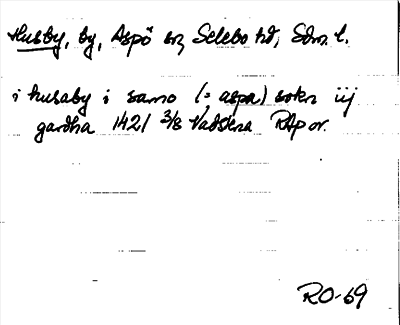 Husby, by, Aspö sn, Selebo hd, Sdm. l.
i husaby i samo (= aspa) sokn iij
gardha 1421 3/8 Vadstena RAp or.
RO-69